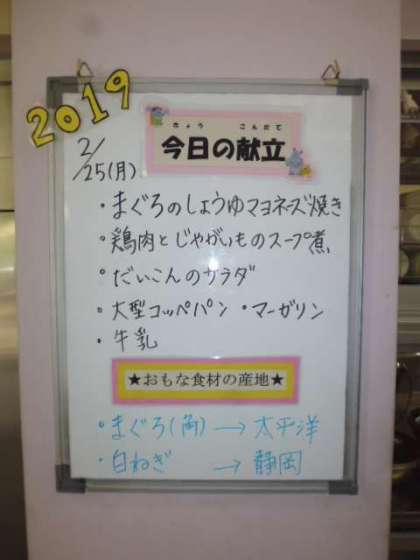 2019
きょう こんだて
今日の献立
2/25(月)
・まぐろのしょうゆマヨネーズ焼き
・鶏肉とじゃがいものスープ煮
・だいこんのサラダ
・大型コッペパン ・マーガリン
・牛乳
★おもな食材の産地★
・まぐろ(角)→太平洋
・白ねぎ →静岡